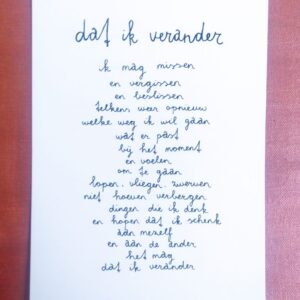 dat ik verander
ik mag missen
en vergissen
en beslissen
telkens weer opnieuw
welke weg ik wil gaan
wat er past
bij het moment
en voelen
om te gaan
lopen, vliegen, zwerven
niet hoeven verbergen
dingen die ik denk
en hopen dat ik schenk
aan mezelf
en aan de ander
het mag
dat ik verander